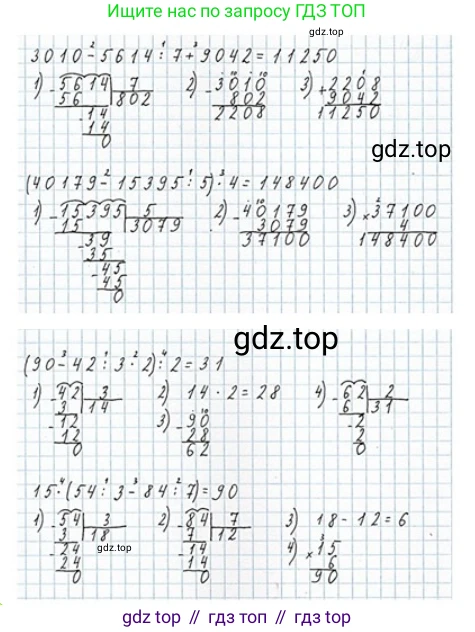 Ищите нас по запросу ГДЗ ТОП
3010 - 5614 : 7 + 9042 = 11250
1) 5614 | 7
56 802
14
14
0
2) 3010
802
2208
3) + 2208
9042
11250
gdz.top
(40179 - 15395 : 5) · 4 = 148400
1) 15395 | 5
15 3079
39
35
45
45
0
2) 40179
3079
37100
3) × 37100
4
148400
gdz.top
(90 - 42 : 3 · 2) : 2 = 31
1) 42 | 3
3 14
12
12
0
2) 14 · 2 = 28
3) 90
28
62
4) 62 | 2
6 31
2
2
0
15 · (54 : 3 - 84 : 7) = 90
1) 54 | 3
3 18
24
24
0
2) 84 | 7
7 12
14
14
0
3) 18 - 12 = 6
4) × 15
6
90
gdz.top
gdz.top // гдз.топ // gdz.top